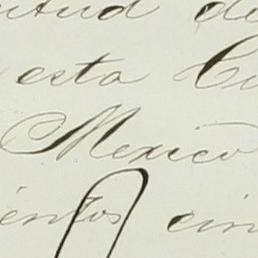 itud de
esta Ci
Mexico
ientos cin